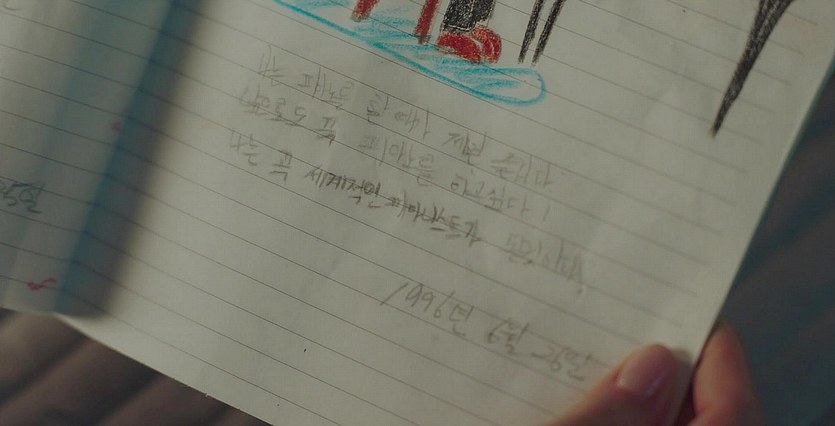 나는 피아노를 칠 때가 제일 즐겁다
앞으로도 꼭 피아노를 하고싶다!
나는 꼭 세계적인 피아니스트가 될것이다
1996년 6월 26일
5일